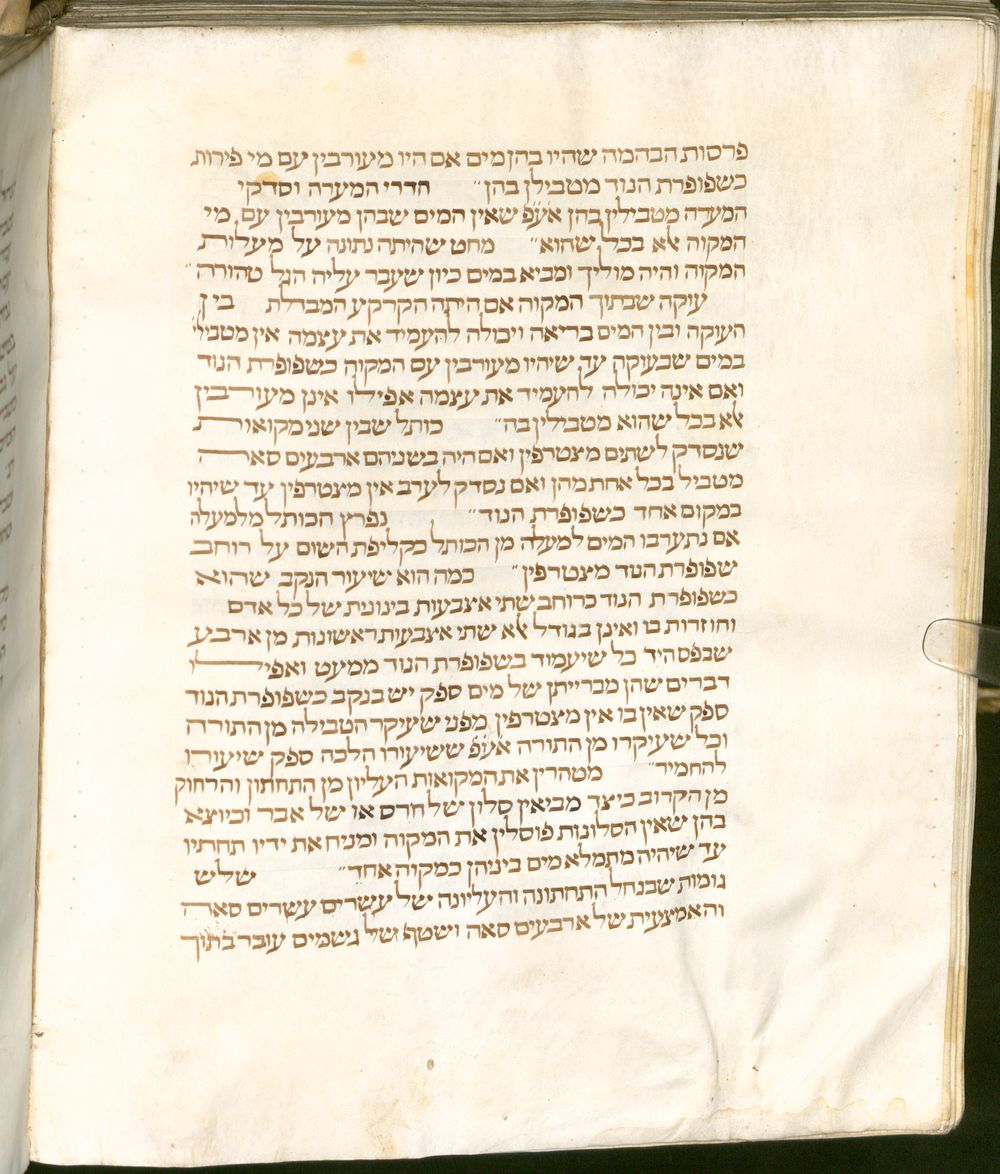 פרסות הבהמה שהיו בהן מים אם היו מעורבין עם מי פירות
כשפופרת הנוד מטבילן בהן״ חדרי המערה וסדקי
המערה מטבילין בהן אעפ שאין המים שבהן מעורבין עם מי
המקוה אלא בכל שהוא״ מחט שהיתה נתונה על מעלות
המקוה והיה מוליך ומביא במים כיון שעבר עליה הגל טהורה״
עוקה שבתוך המקוה אם היתה הקרקע המבדלת בין
העוקה ובין המים בריאה ויכולה להעמיד את עצמה אין מטבילי
במים שבעוקה עד שיהיו מעורבין עם המקוה כשפופרת הנוד
ואם אינה יכולה להעמיד את עצמה אפילו אינן מעורבין
אלא בכל שהוא מטבילין בה״ כותל שבין שני מקואות
שנסדק לשתים מצטרפין ואם היה בשניהם ארבעים סאה
מטביל בכל אחת מהן ואם נסדק לערב אין מצטרפין עד שיהיו
במקום אחד כשפופרת הנוד״ נפרץ הכותל מלמעלה
אם נתערבו המים למעלה מן הכותל כקליפת השום על רוחב
שפופרת הנוד מצטרפין״ כמה הוא שיעור הנקב שהוא
כשפופרת הנוד כרוחב שתי אצבעות בינונית של כל אדם
וחוזרות בו ואינן בגודל אלא שתי אצבעות ראשונות מן ארבע
שבפס היד כל שיעמוד בשפופרת הנוד ממעט ואפילו
דברים שהן מברייתן של מים ספק יש בנקב כשפופרת הנוד
ספק שאין בו אין מצטרפין מפני שעיקר הטבילה מן התורה
וכל שעיקרו מן התורה אעפ ששיעורו הלכה ספק שיעורו
להחמיר״ מטהרין את המקואות העליון מן התחתון והרחוק
מן הקרוב כיצד מביאין סלון של חרס או של אבר וכיוצא
בהן שאין הסלונות פוסלין את המקוה ומניח את ידיו תחתיו
עד שיהיה מתמלא מים ביניהן כמקוה אחד״ שלש
גומות שבנחל התחתונה והעליונה של עשרים עשרים סאה
והאמצעית של ארבעים סאה ושטף של גשמים עובר בתוך